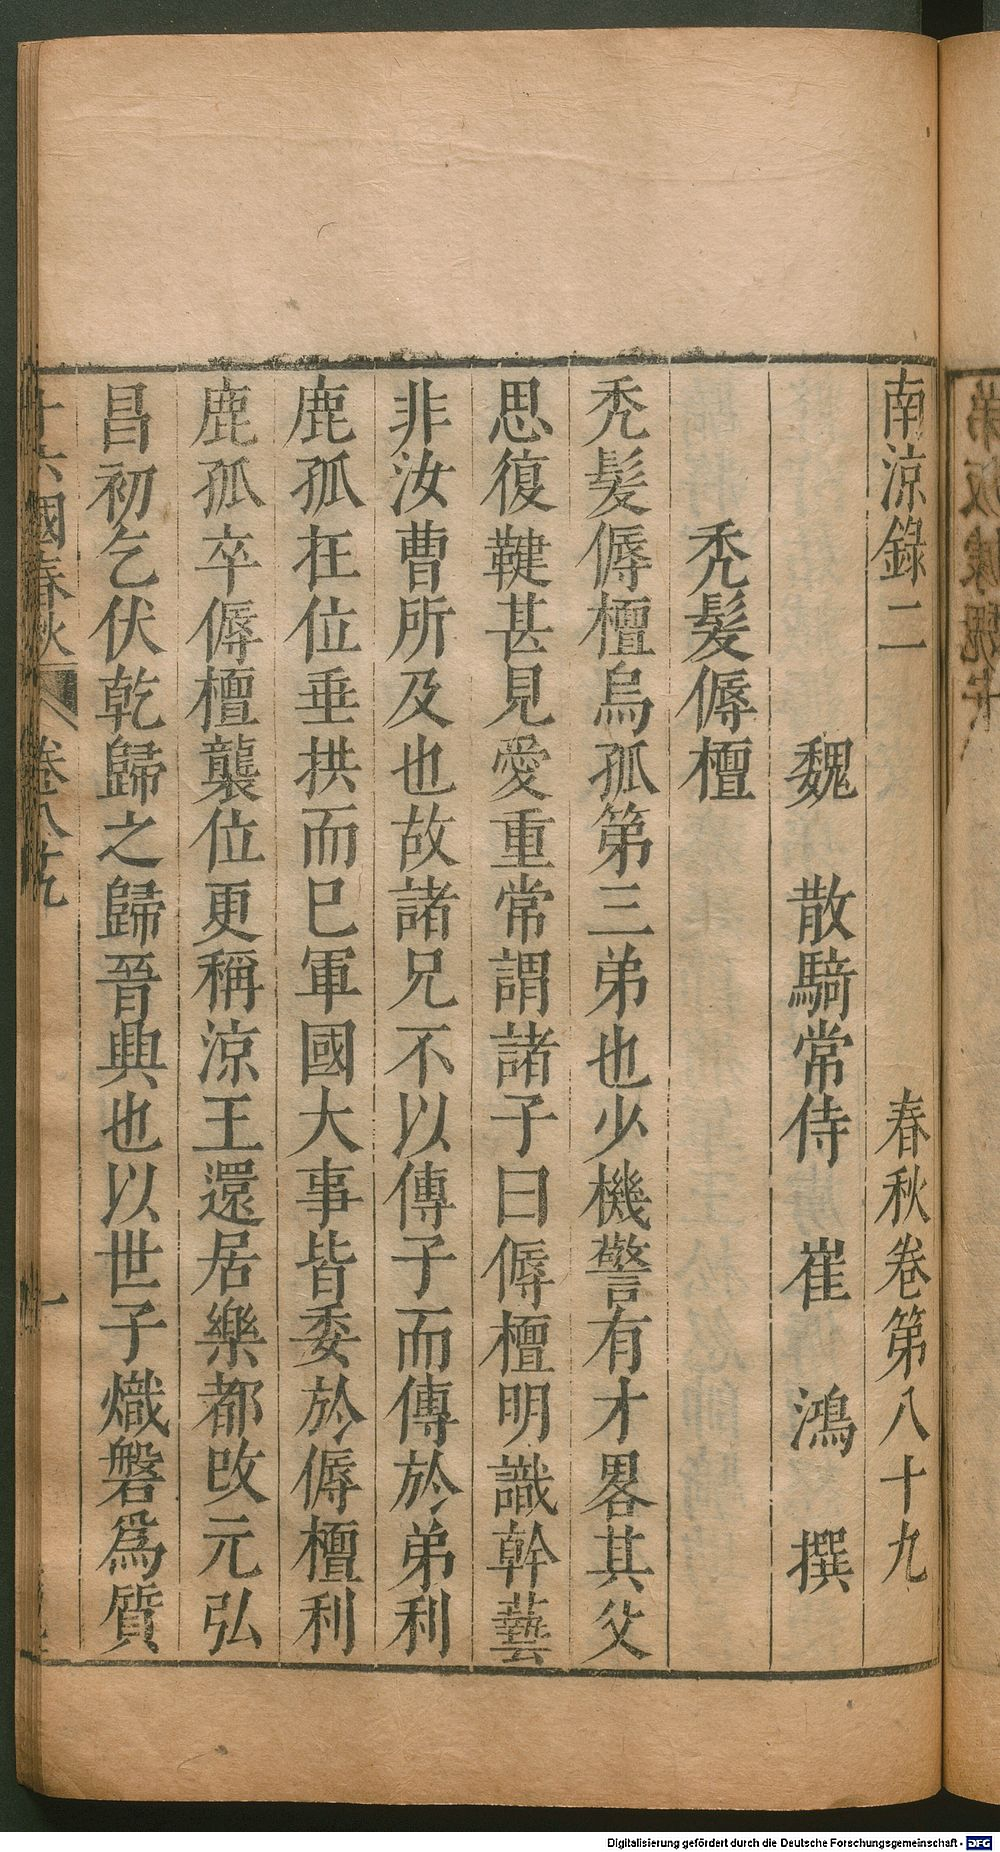 南涼錄二　春秋卷第八十九
魏　散騎常侍　崔　鴻　撰
禿髮傉檀
禿髮傉檀烏孤第三弟也少機警有才畧其父
思復鞬甚見愛重常謂諸子曰傉檀明識幹藝
非汝曹所及也故諸兄不以傳子而傳於弟利
鹿孤在位垂拱而巳軍國大事皆委於傉檀利
鹿孤卒傉檀襲位更稱涼王還居樂都改元弘
昌初乞伏乾歸之歸晉興也以世子熾磐爲質
十六國春秋　卷八十九　一
Digitalisierung gefördert durch die Deutsche Forschungsgemeinschaft - DFG